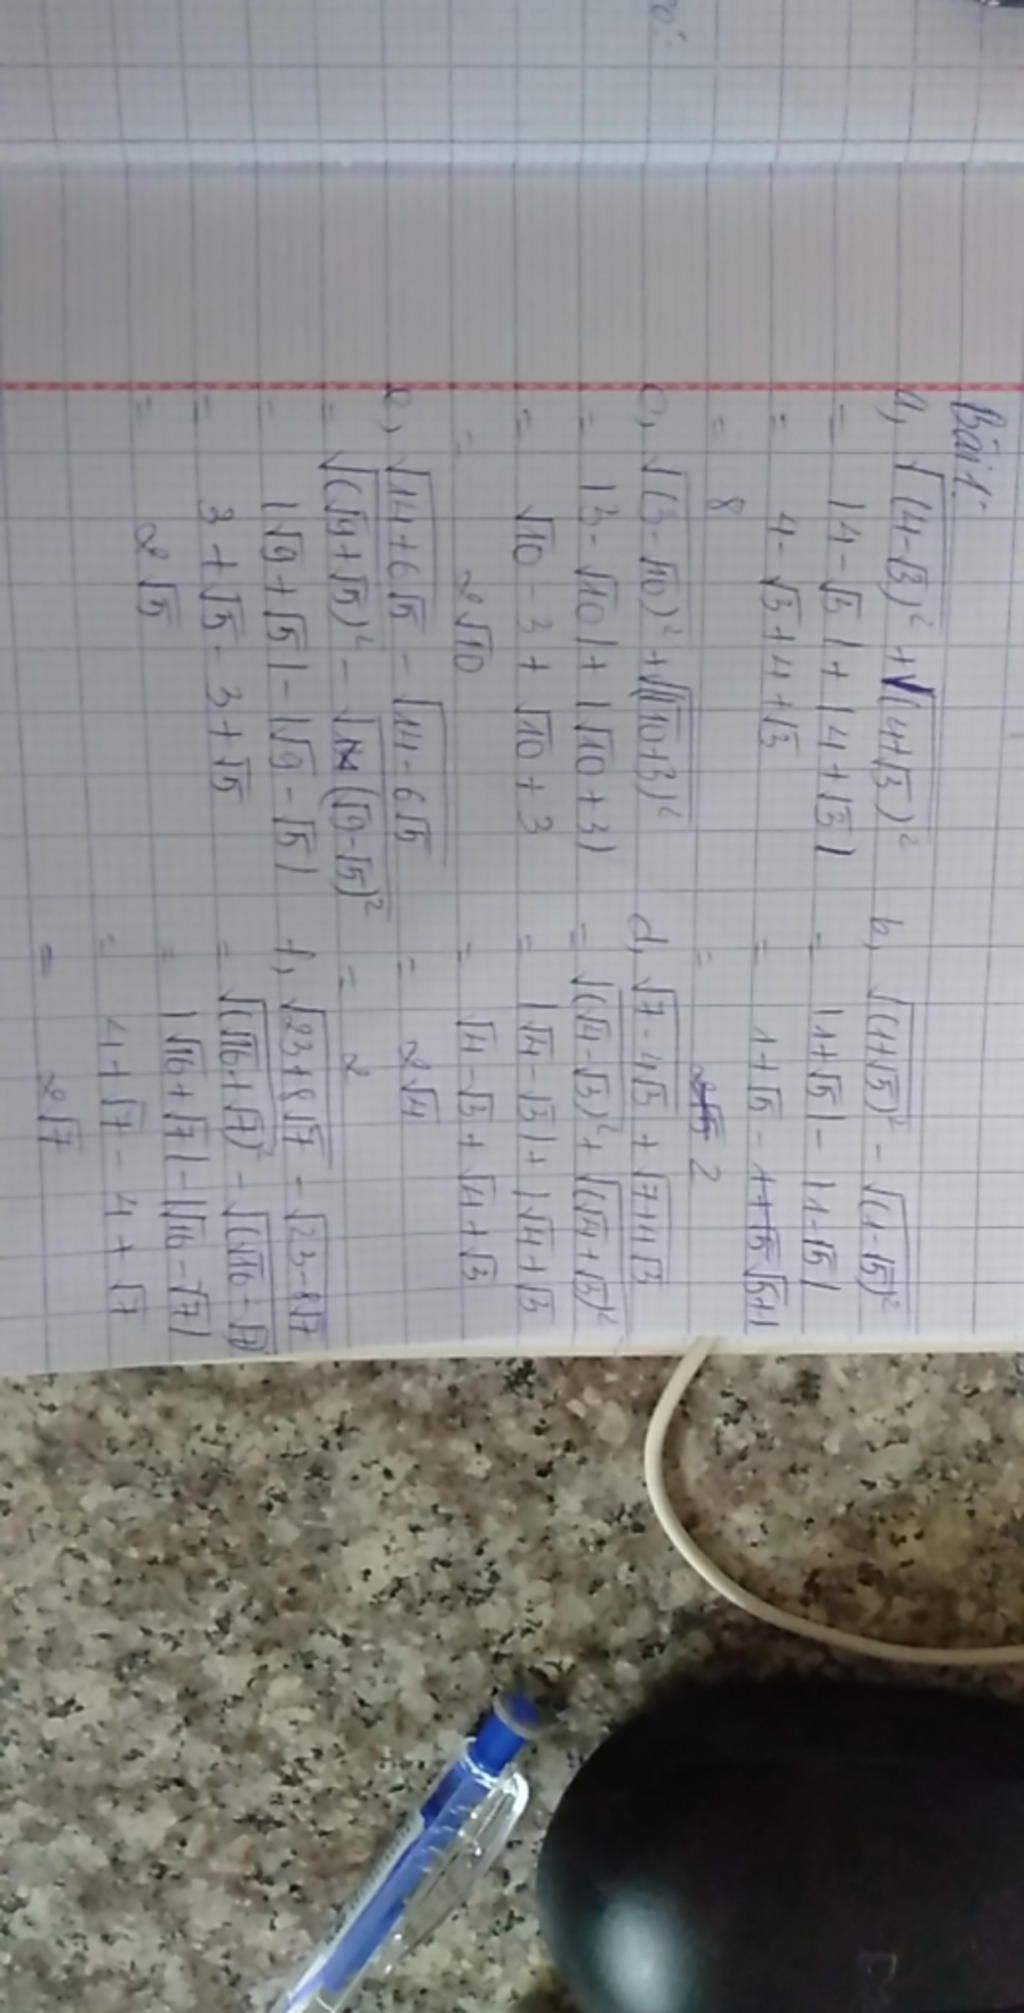 Bài 1:
a, √(4-√3)² + √(4+√3)²
= |4-√3| + |4+√3|
= 4-√3+4+√3
= 8
b, √(1+√5)² - √(1-√5)²
= |1+√5| - |1-√5|
= 1+√5 - 1+√5 √5+1
= 2√5 2
c, √(3-√10)² + √(√10+3)²
= |3-√10| + |√10+3)
= √10 - 3 + √10 + 3
= 2√10
d, √7-4√3 + √7+4√3
= √(√4-√3)² + √(√4+√3)²
= |√4-√3| + |√4+√3
= √4-√3 + √4+√3
= 2√4
= 2
e, √14+6√5 - √14-6√5
= √(√9+√5)² - √(√9-√5)²
= |√9+√5| - |√9-√5|
= 3+√5 - 3+√5
= 2√5
f, √23+8√7 - √23-8√7
= √(√16+√7)² - √(√16-√7)
= |√16+√7| - |√16-√7|
= 4+√7 - 4+√7
= 2√7